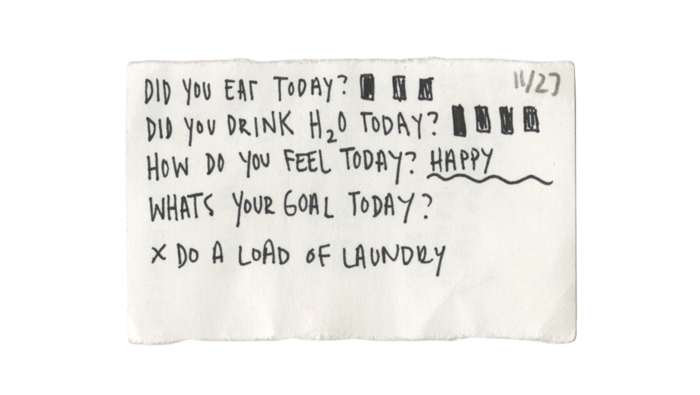 11/27
DID YOU EAT TODAY?
DID YOU DRINK H₂O TODAY?
HOW DO YOU FEEL TODAY? HAPPY
WHATS YOUR GOAL TODAY?
x DO A LOAD OF LAUNDRY